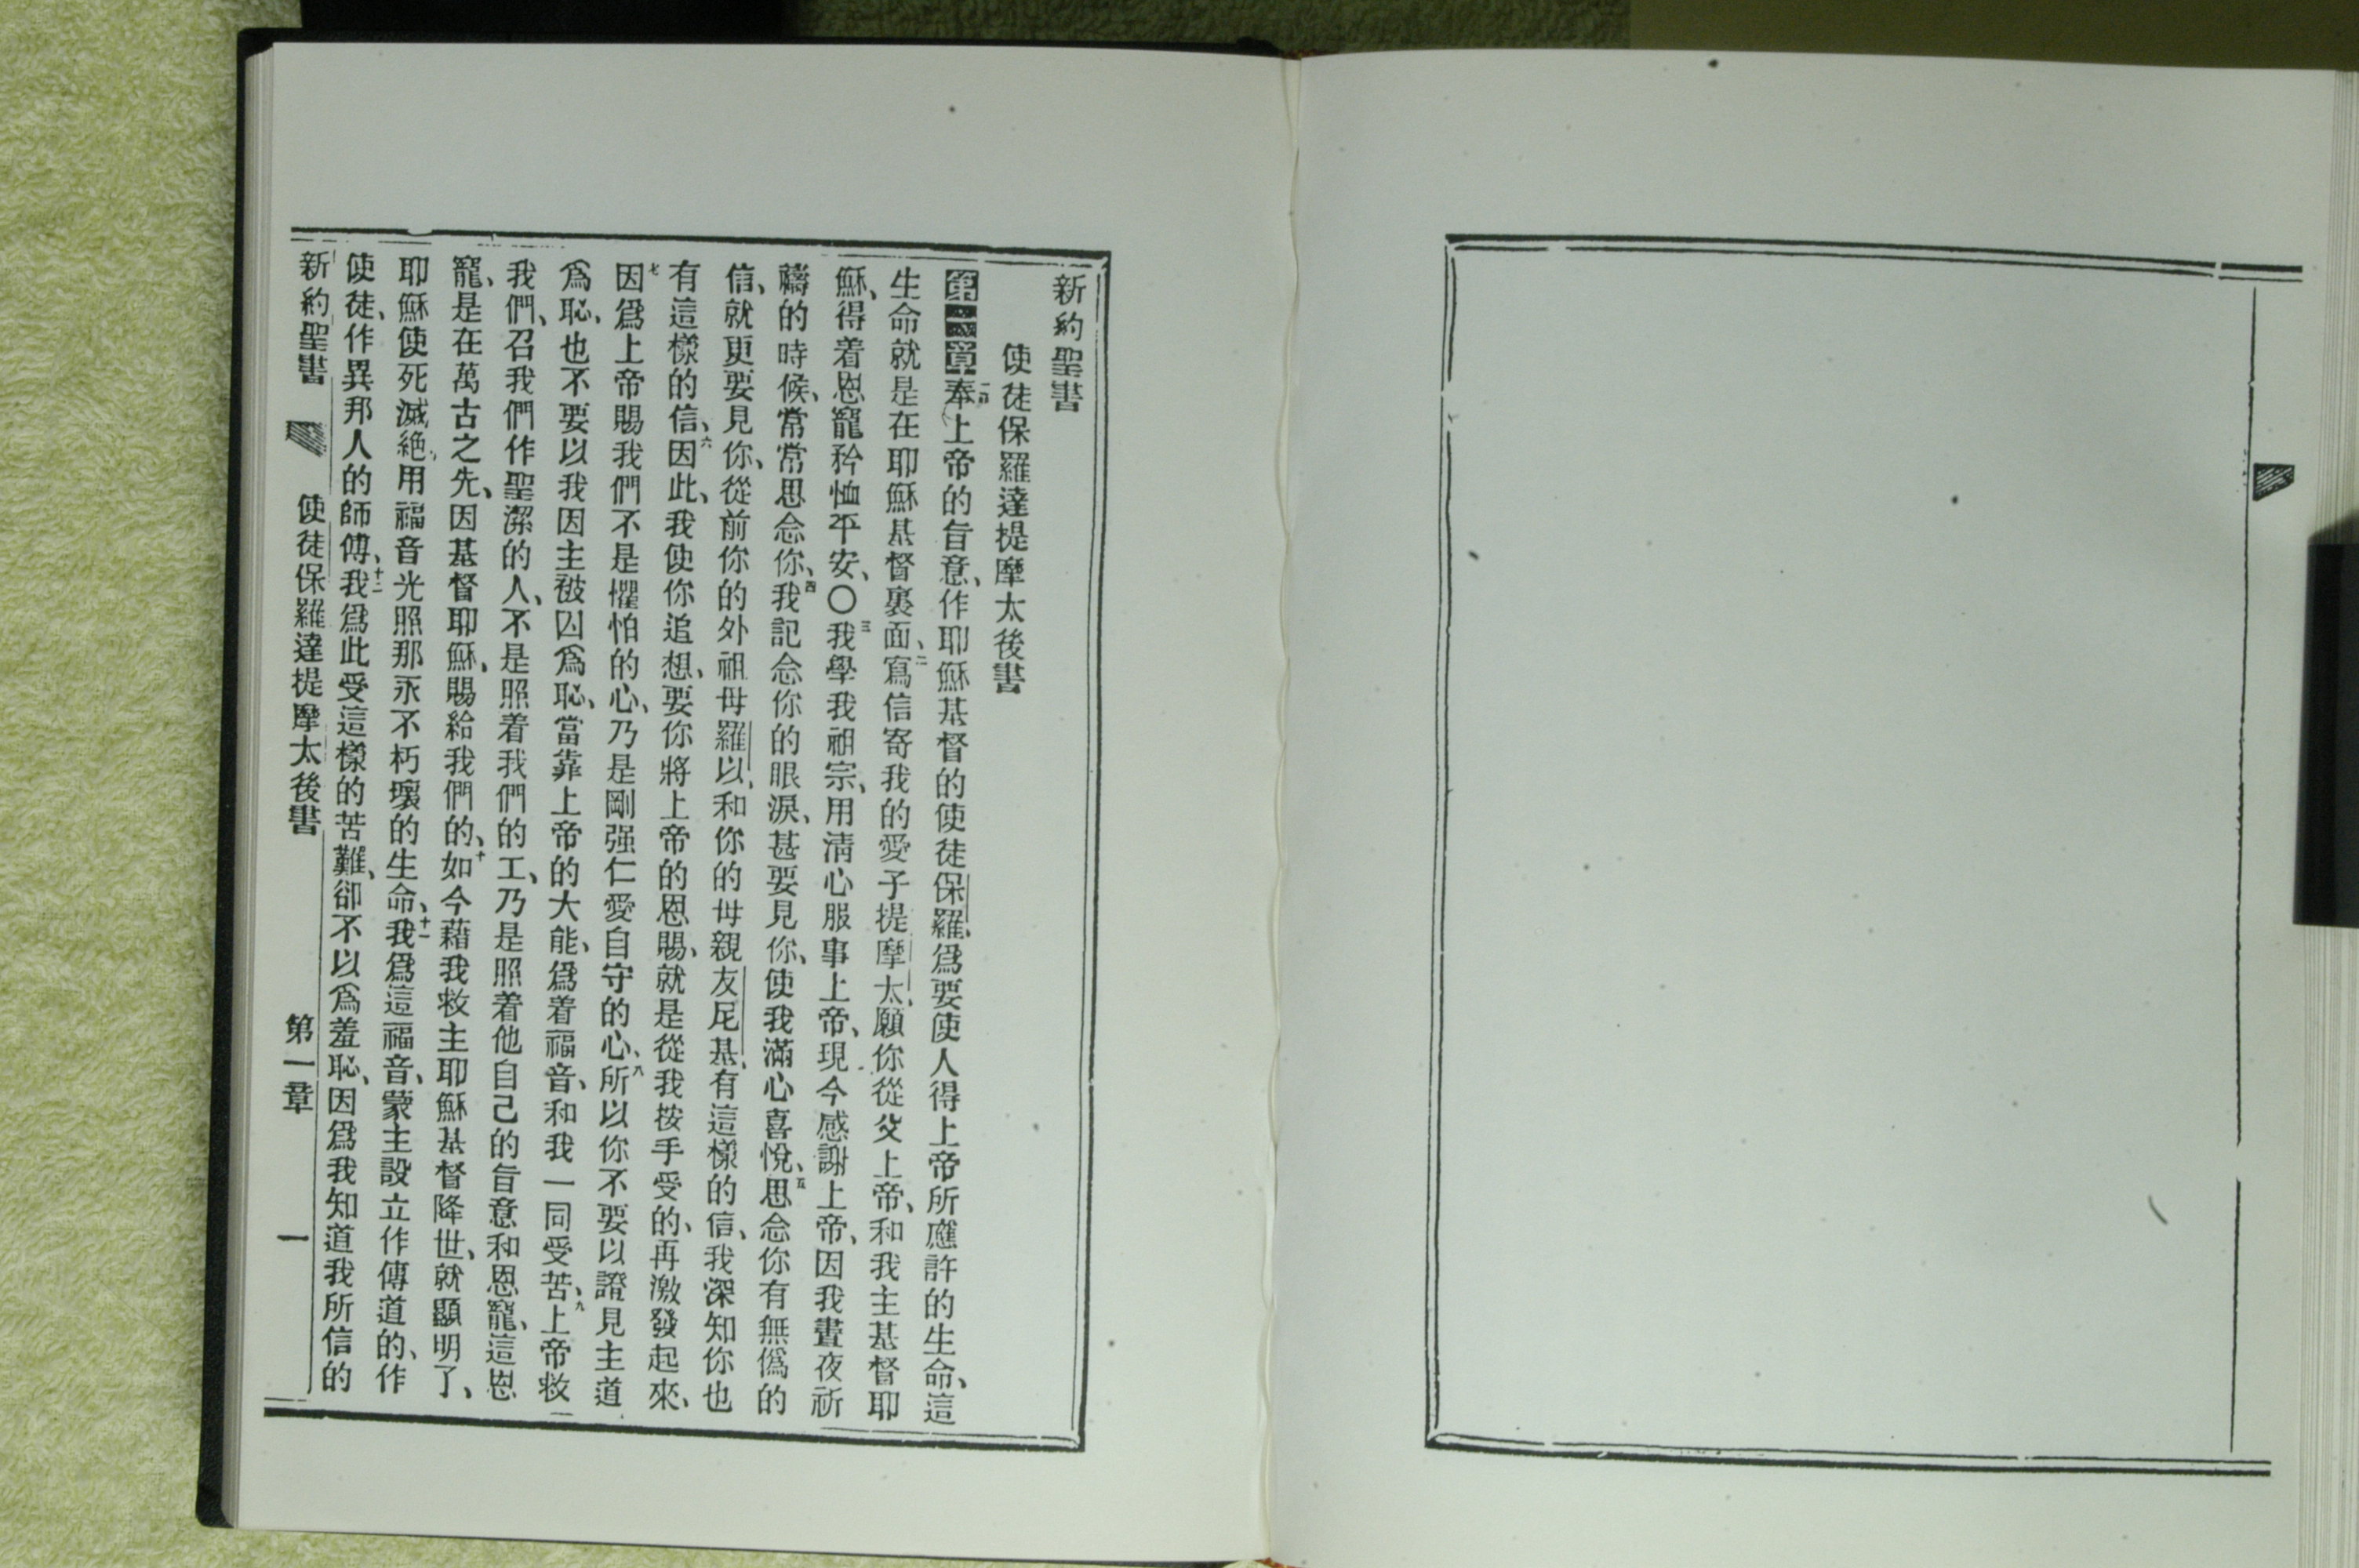 新約聖書
使徒保羅達提摩太後書
第一章奉上帝的旨意、作耶穌基督的使徒保羅、爲要使人得上帝所應許的生命、這
生命就是在耶穌基督裏面、二寫信寄我的愛子提摩太、願你從父上帝、和我主基督耶
穌、得着恩寵矜恤平安、〇三我學我祖宗、用淸心服事上帝、現今感謝上帝、因我晝夜祈
禱的時候、常常思念你、四我記念你的眼淚、甚要見你、使我滿心喜悅、五思念你有無僞的
信、就更要見你、從前你的外祖母羅以、和你的母親友尼基、有這樣的信、我深知你也
有這樣的信、六因此、我使你追想、要你將上帝的恩賜、就是從我按手受的、再激發起來、
七因爲上帝賜我們不是懼怕的心、乃是剛强仁愛自守的心、八所以你不要以證見主道
爲恥、也不要以我因主被囚爲恥、當靠上帝的大能、爲着福音、和我一同受苦、九上帝救
我們、召我們作聖潔的人、不是照着我們的工、乃是照着他自己的旨意和恩寵、這恩
寵、是在萬古之先、因基督耶穌、賜給我們的、十如今藉我救主耶穌基督降世、就顯明了、
耶穌使死滅絶、用福音光照那永不朽壞的生命、十一我爲這福音、蒙主設立作傳道的、作
使徒、作異邦人的師傅、十二我爲此受這樣的苦難、卻不以爲羞恥、因爲我知道我所信的
新約聖書 使徒保羅達提摩太後書 第一章 一